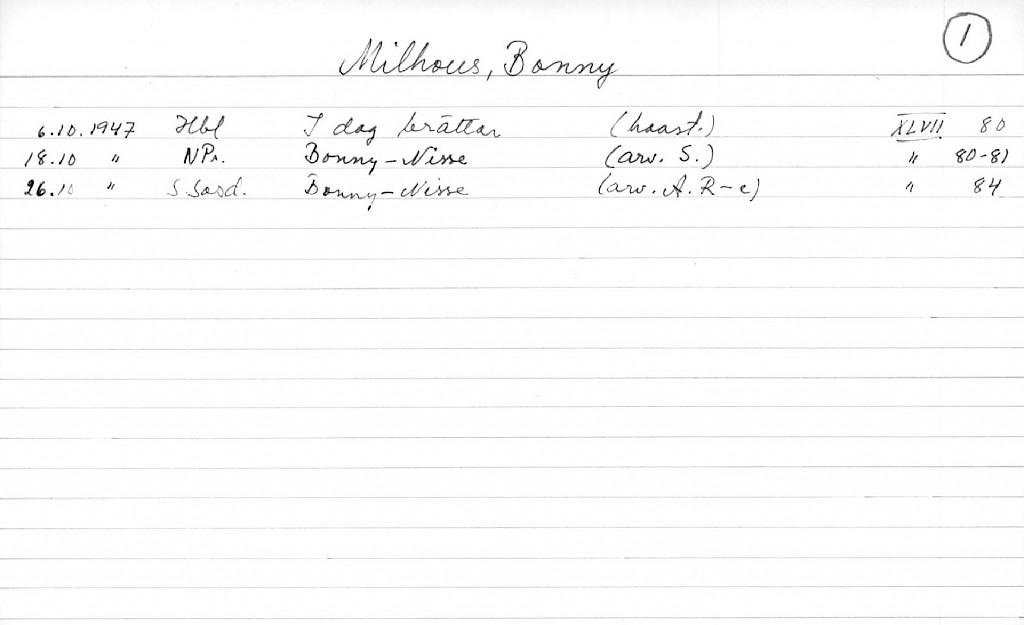 1
Milhous, Bonny
6.10.1947 Hbl I dag berättar (haast.) XLVII 80
18.10 " NPr. Bonny-Nisse (arv. S.) " 80-81
26.10 " S Sosd. Bonny-Nisse (arv. A. R-e) " 84